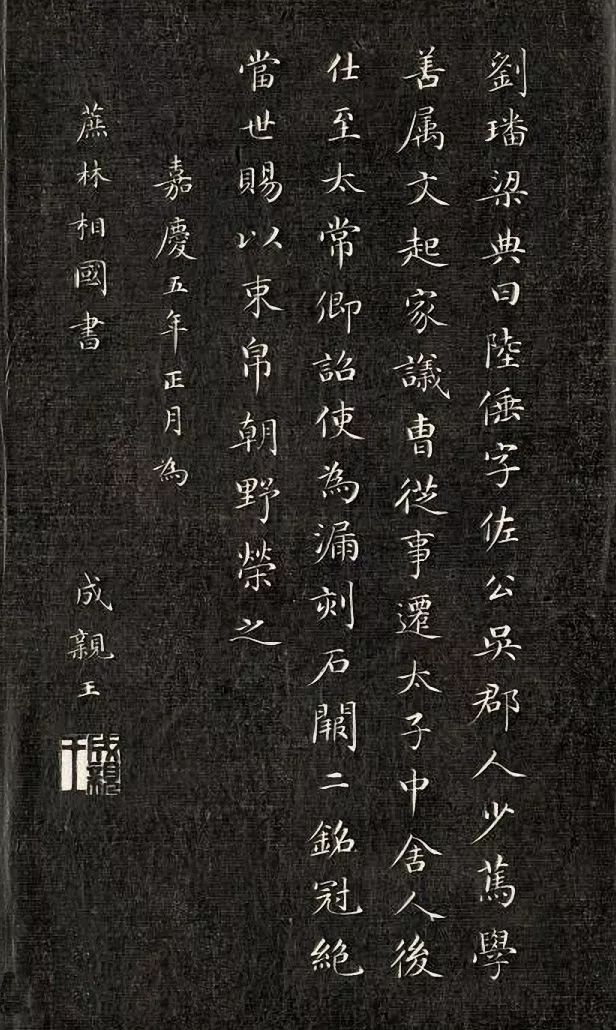 劉璠梁典曰陸倕字佐公吳郡人少篤學
善属文起家議曹從事遷太子中舍人後
仕至太常卿詔使為漏刻石闕二銘冠絕
當世賜以束帛朝野榮之
嘉慶五年正月為
蔗林相國書
成親王
成親王